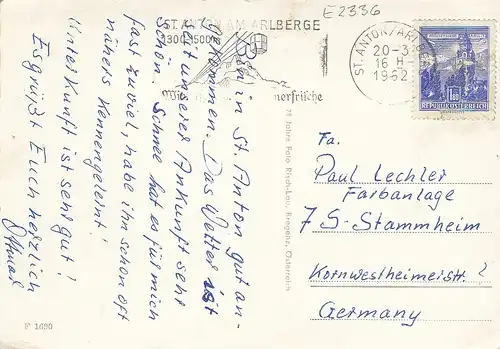 E2336
ST. ANTON AM ARLBERGE
1300-1500
ST. ANTON/ARL
20-3.
16 H
1962
REPUBLIK ÖSTERREICH
Bin in St. Anton gut an-
gekommen. Das Wetter ist
seit unserer Ankunft sehr
schön. Schnee hat es für mich
fast zuviel, habe ihn schon oft
nähers kennengelernt!
Unterkunft ist sehr gut!
Es grüßt Euch herzlich
Othmar
Jahre Foto Risch-Lau, Bregenz, Österreich
F 1690
Fa.
Paul Lechler
Farbanlage
7 S-Stammheim
Kornwestheimerstr. 2
Germany